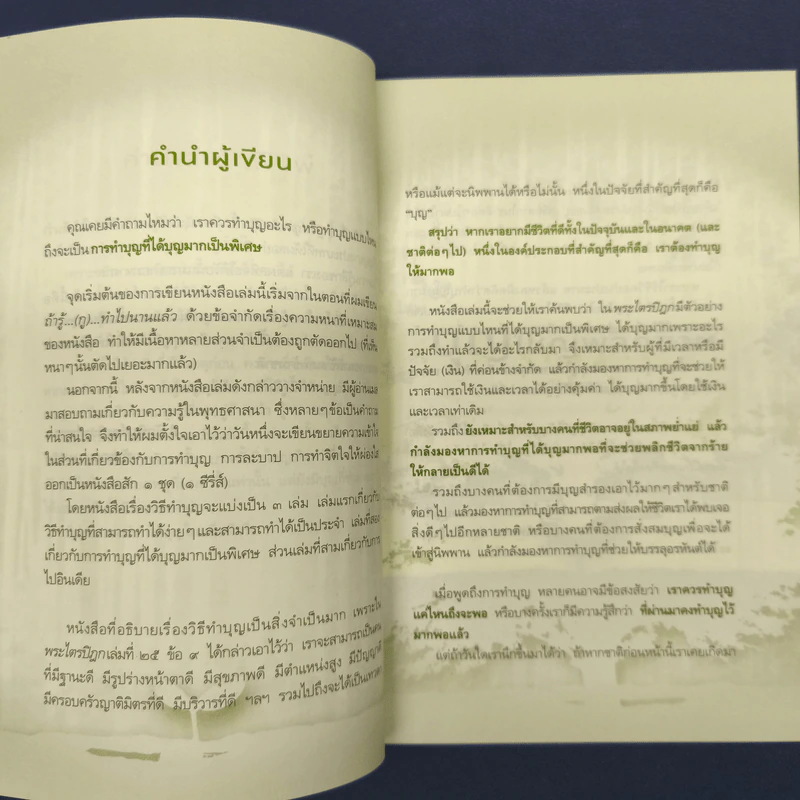 คำนำผู้เขียน
คุณเคยมีคำถามไหมว่า เราควรทำบุญอะไร หรือทำบุญแบบไหน
ถึงจะเป็น การทำบุญที่ได้บุญมากเป็นพิเศษ
จุดเริ่มต้นของการเขียนหนังสือเล่มนี้เริ่มจากในตอนที่ผมเขียน
ถ้ารู้...(กู)...ทำไปนานแล้ว ด้วยข้อจำกัดเรื่องความหนาที่เหมาะสม
ของหนังสือ ทำให้มีเนื้อหาหลายส่วนจำเป็นต้องถูกตัดออกไป (ที่เห็น
หนาๆนั้นตัดไปเยอะมากแล้ว)
นอกจากนี้ หลังจากหนังสือเล่มดังกล่าววางจำหน่าย มีผู้อ่าน
มาสอบถามเกี่ยวกับความรู้ในพุทธศาสนา ซึ่งหลายๆข้อเป็นคำถาม
ที่น่าสนใจ จึงทำให้ผมตั้งใจเอาไว้ว่าวันหนึ่งจะเขียนขยายความเข้าใจ
ในส่วนที่เกี่ยวข้องกับการทำบุญ การละบาป การทำจิตใจให้ผ่องใส
ออกเป็นหนังสือสัก ๑ ชุด (๑ ซีรี่ส์)
โดยหนังสือเรื่องวิธีทำบุญจะแบ่งเป็น ๓ เล่ม เล่มแรกเกี่ยวกับ
วิธีทำบุญที่สามารถทำได้ง่ายๆและสามารถทำได้เป็นประจำ เล่มที่สอง
เกี่ยวกับการทำบุญที่ได้บุญมากเป็นพิเศษ ส่วนเล่มที่สามเกี่ยวกับการ
ไปอินเดีย
หนังสือที่อธิบายเรื่องวิธีทำบุญเป็นสิ่งจำเป็นมาก เพราะใน
พระไตรปิฎกเล่มที่ ๒๕ ข้อ ๙ ได้กล่าวเอาไว้ว่า เราจะสามารถเป็นคน
ที่มีฐานะดี มีรูปร่างหน้าตาดี มีสุขภาพดี มีตำแหน่งสูง มีปัญญาดี
มีครอบครัวญาติมิตรที่ดี มีบริวารที่ดี ฯลฯ รวมไปถึงจะได้เป็นเทวดา
หรือแม้แต่จะนิพพานได้หรือไม่นั้น หนึ่งในปัจจัยที่สำคัญที่สุดก็คือ
“บุญ”
สรุปว่า หากเราอยากมีชีวิตที่ดีทั้งในปัจจุบันและในอนาคต (และ
ชาติต่อๆไป) หนึ่งในองค์ประกอบที่สำคัญที่สุดก็คือ เราต้องทำบุญ
ให้มากพอ
หนังสือเล่มนี้จะช่วยให้เราค้นพบว่า ใน พระไตรปิฎก มีตัวอย่าง
การทำบุญแบบไหนที่ได้บุญมากเป็นพิเศษ ได้บุญมากเพราะอะไร
รวมถึงทำแล้วจะได้อะไรกลับมา จึงเหมาะสำหรับผู้ที่มีเวลาหรือมี
ปัจจัย (เงิน) ที่ค่อนข้างจำกัด แล้วกำลังมองหาการทำบุญที่จะช่วยให้
เราสามารถใช้เงินและเวลาได้อย่างคุ้มค่า ได้บุญมากขึ้นโดยใช้เงิน
และเวลาเท่าเดิม
รวมถึง ยังเหมาะสำหรับบางคนที่ชีวิตอาจอยู่ในสภาพย่ำแย่ แล้ว
กำลังมองหาการทำบุญที่ได้บุญมากพอที่จะช่วยพลิกชีวิตจากร้าย
ให้กลายเป็นดีได้
รวมถึงบางคนที่ต้องการมีบุญสำรองเอาไว้มากๆสำหรับชาติ
ต่อๆไป แล้วมองหาการทำบุญที่สามารถตามส่งผลให้ชีวิตเราได้พบเจอ
สิ่งดีๆไปอีกหลายชาติ หรือบางคนที่ต้องการสั่งสมบุญเพื่อจะได้
เข้าสู่นิพพาน แล้วกำลังมองหาการทำบุญที่ช่วยให้บรรลุอรหันต์ได้
เมื่อพูดถึงการทำบุญ หลายคนอาจมีข้อสงสัยว่า เราควรทำบุญ
แค่ไหนถึงจะพอ หรือบางครั้งเราก็มีความรู้สึกว่า ที่ผ่านมาคงทำบุญไว้
มากพอแล้ว
แต่ถ้าวันใดเรานึกขึ้นมาได้ว่า ถ้าหากชาติก่อนหน้านี้เราเคยเกิดมา